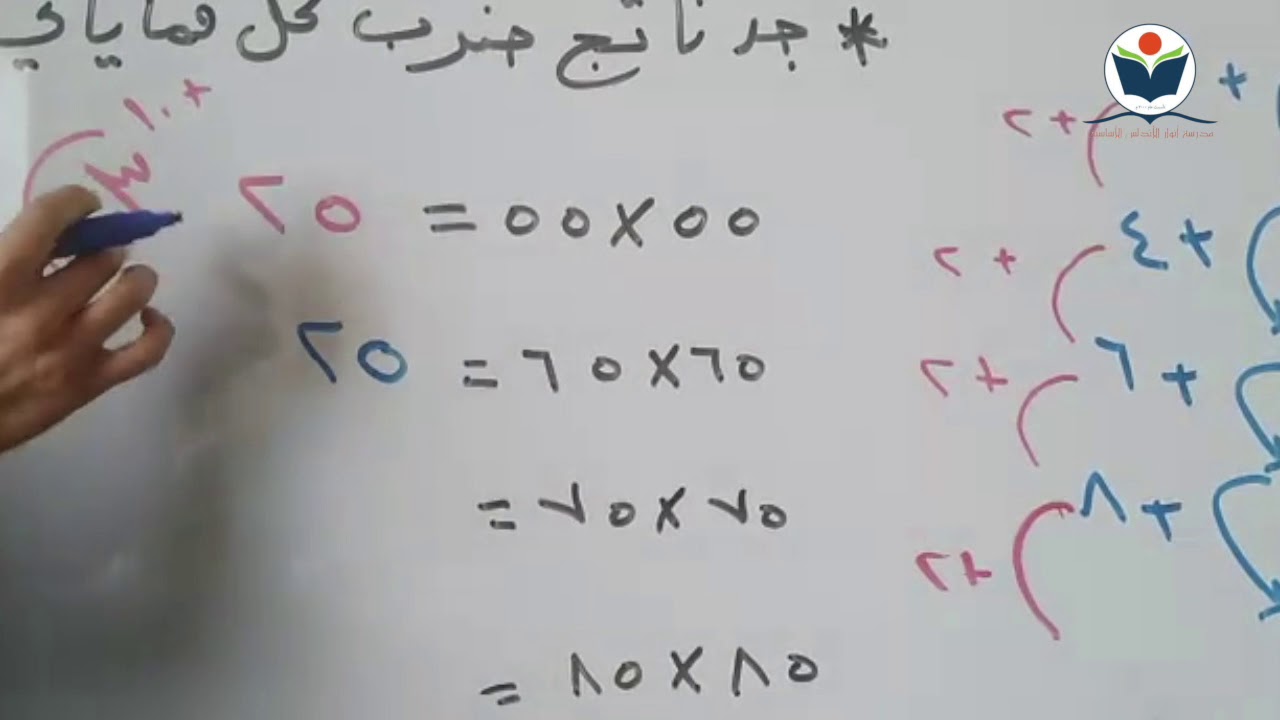 * جد ناتج ضرب كل مما يأتي
٥٥×٥٥ = ٢٥
٦٥×٦٥ = ٢٥
٧٥×٧٥ =
٨٥×٨٥ =
+١٠
+
+٢
+٤
+٢
+٦
+٢
+٨
+٢
مدرسة أنوار الأندلس الأساسية